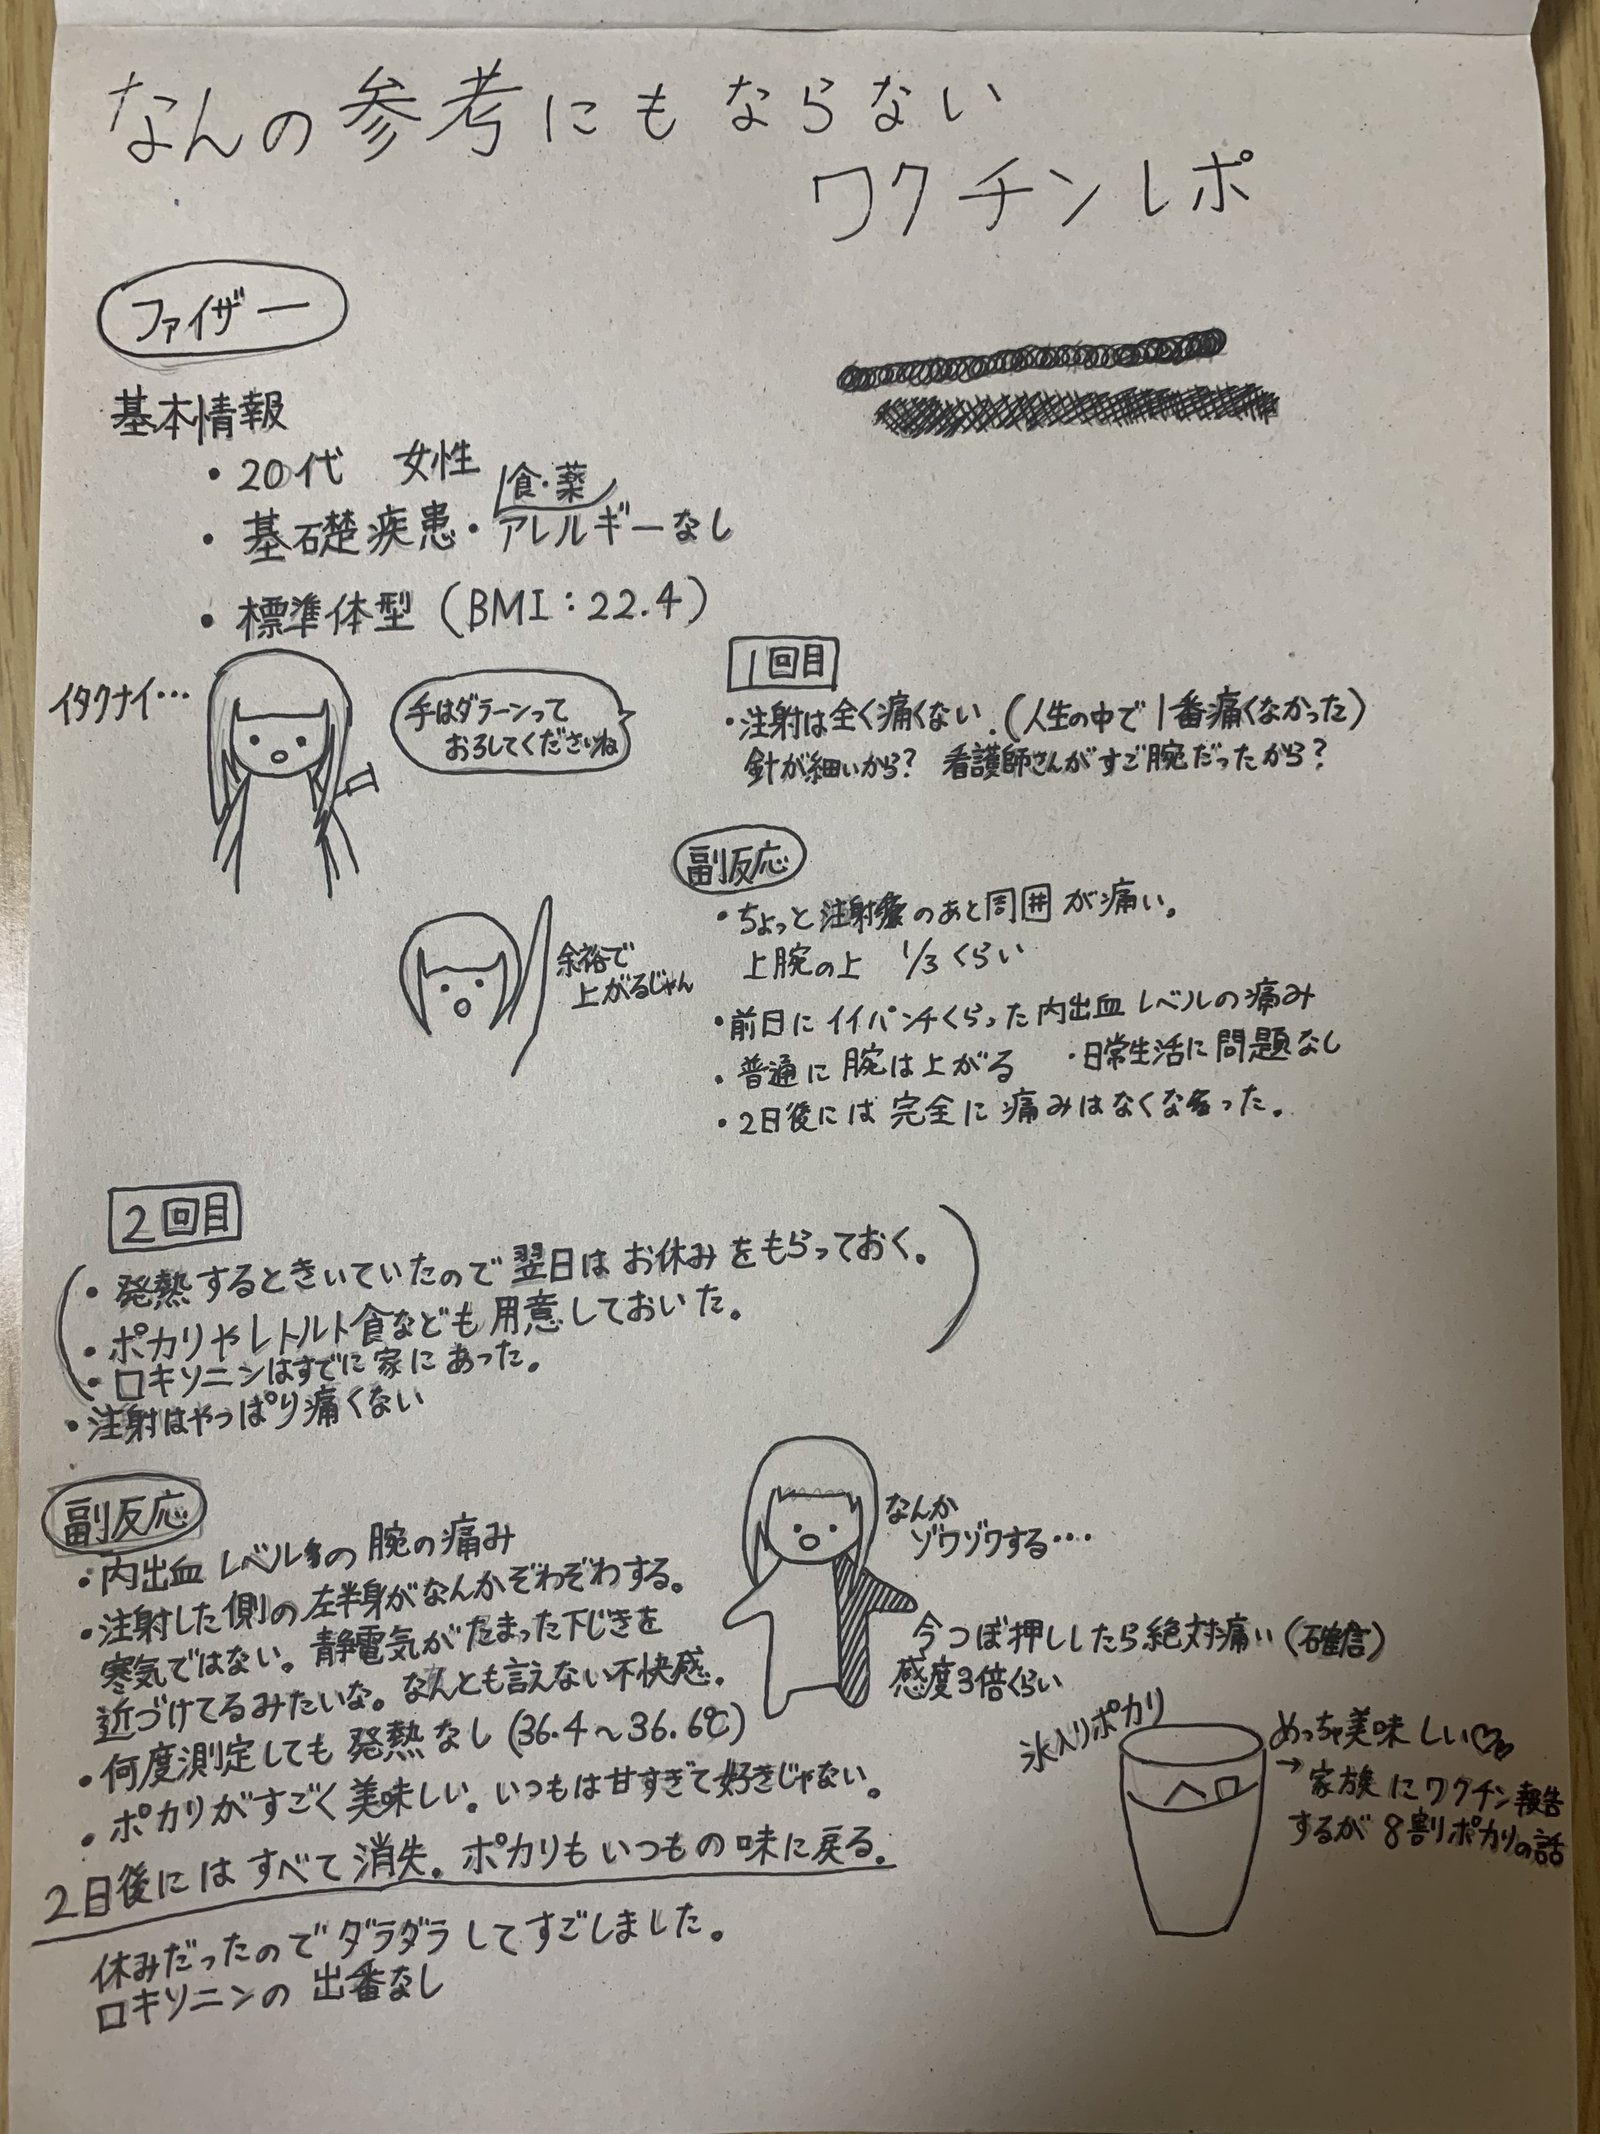 なんの参考にもならない
ワクチンレポ
ファイザー
基本情報
・20代 女性
食・薬
・基礎疾患・アレルギーなし
・標準体型(BMI:22.4)
イタクナイ…
手はダラーンって
おろしてくださいね
1回目
・注射は全く痛くない.(人生の中で1番痛くなかった)
針が細いから? 看護師さんがすご腕だったから?
副反応
・ちょっと注射のあと周囲が痛い。
上腕の上 1/3くらい
・前日にイイパンチくらった内出血レベルの痛み
・普通に腕は上がる ・日常生活に問題なし
・2日後には完全に痛みはなくなった。
余裕で
上がるじゃん
2回目
(・発熱するときいていたので翌日はお休みをもらっておく。
・ポカリやレトルト食なども用意しておいた。
・ロキソニンはすでに家にあった。)
・注射はやっぱり痛くない
副反応
・内出血レベルの腕の痛み
・注射した側の左半身がなんかぞわぞわする。
寒気ではない。静電気がたまった下じきを
近づけてるみたいな。なんとも言えない不快感.
・何度測定しても発熱なし(36.4〜36.6℃)
・ポカリがすごく美味しい。いつもは甘すぎて好きじゃない。
2日後にはすべて消失。ポカリもいつもの味に戻る.
休みだったのでダラダラしてすごしました。
ロキソニンの出番なし
なんか
ゾワゾワする‥‥
今つぼ押ししたら絶対痛い(確信)
感度3倍くらい
氷入りポカリ
めっちゃ美味しい♡♡
→家族にワクチン報告
するが8割ポカリの話